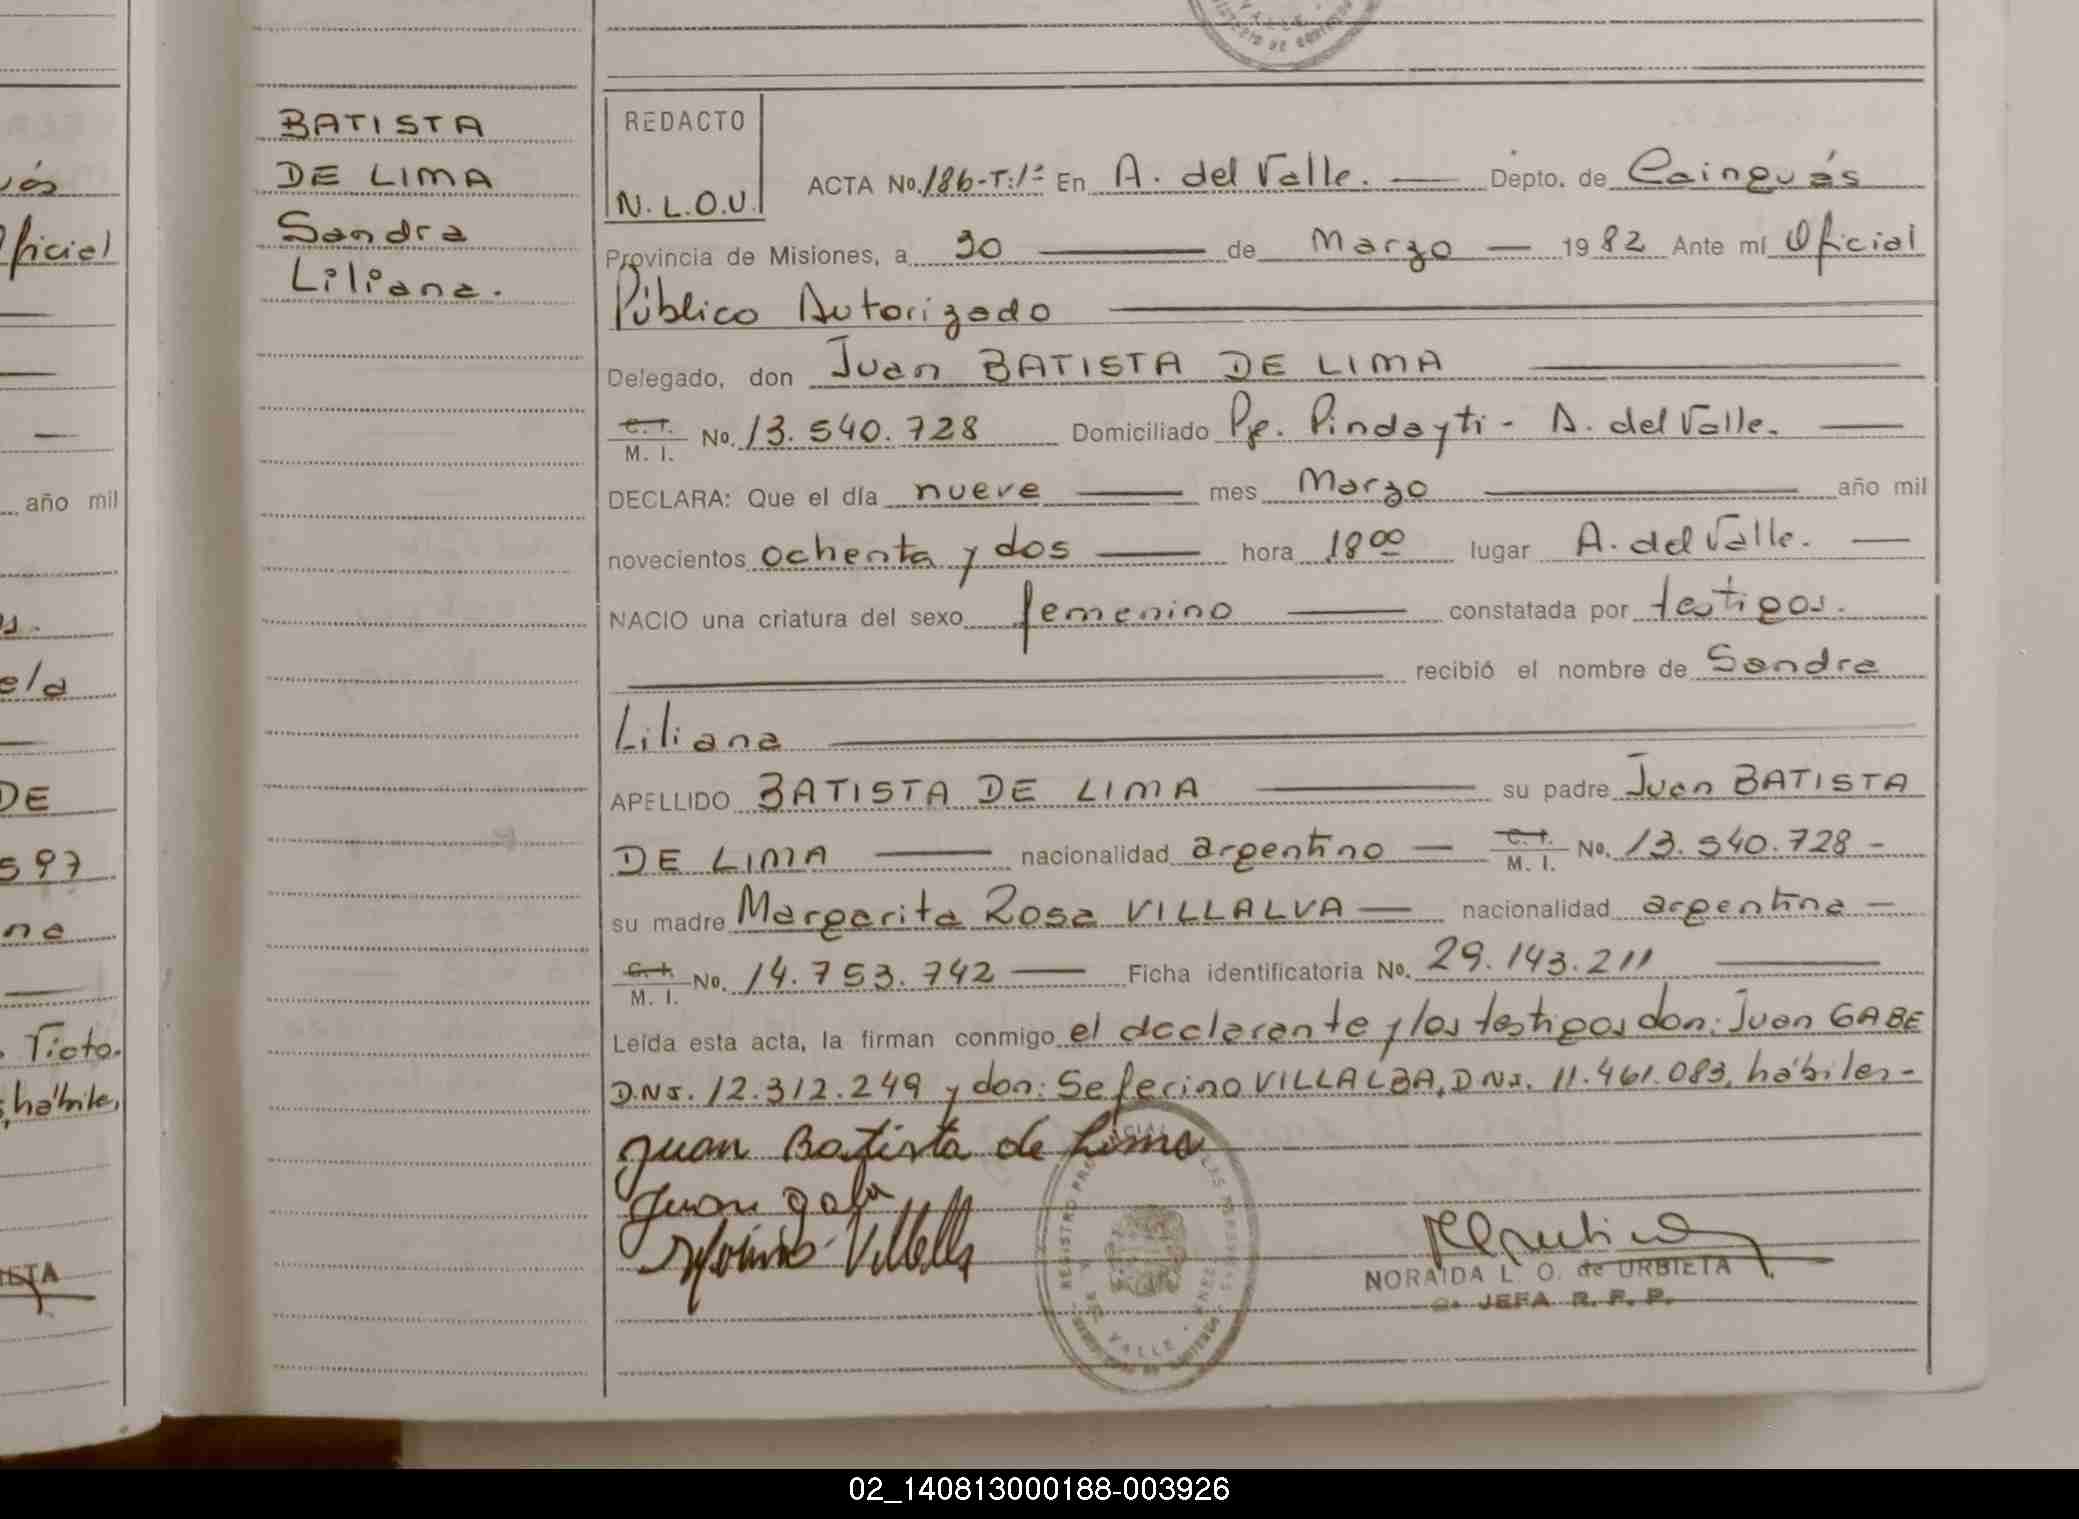 BATISTA
DE LIMA
Sandra
Liliana.
REDACTO
N.L.O.U.
ACTA No. 186-T:1º En A. del Valle. Depto. de Cainguás
Provincia de Misiones, a 30 de Marzo 1982 Ante mí Oficial
Público Autorizado
Delegado, don Juan BATISTA DE LIMA
C.I. M. I. No. 13.540.728 Domiciliado Pje. Pindayti - A. del Valle.
DECLARA: Que el día nueve mes Marzo año mil
novecientos ochenta y dos hora 18 00 lugar A. del Valle.
NACIO una criatura del sexo femenino constatada por testigos.
recibió el nombre de Sandra
Liliana
APELLIDO BATISTA DE LIMA su padre Juan BATISTA
DE LIMA nacionalidad argentino C.I. M. I. No. 13.540.728 -
su madre Margarita Rosa VILLALVA nacionalidad argentina -
C.I. M. I. No. 14.753.742 Ficha identificatoria No. 29.143.211
Leída esta acta, la firman conmigo el declarante y los testigos don: Juan GABE
D.N.I. 12.312.249 y don: Seferino VILLALBA, D.N.I. 11.461.083, hábiles -
Juan Batista de Lima
Juan gabe
NORAIDA L. O. de URBIETA
JEFA R. P. P.
REGISTRO PRO
VALLE
año mil
ficial
DE
597
Ticto.
hábiles,
02_140813000188-003926